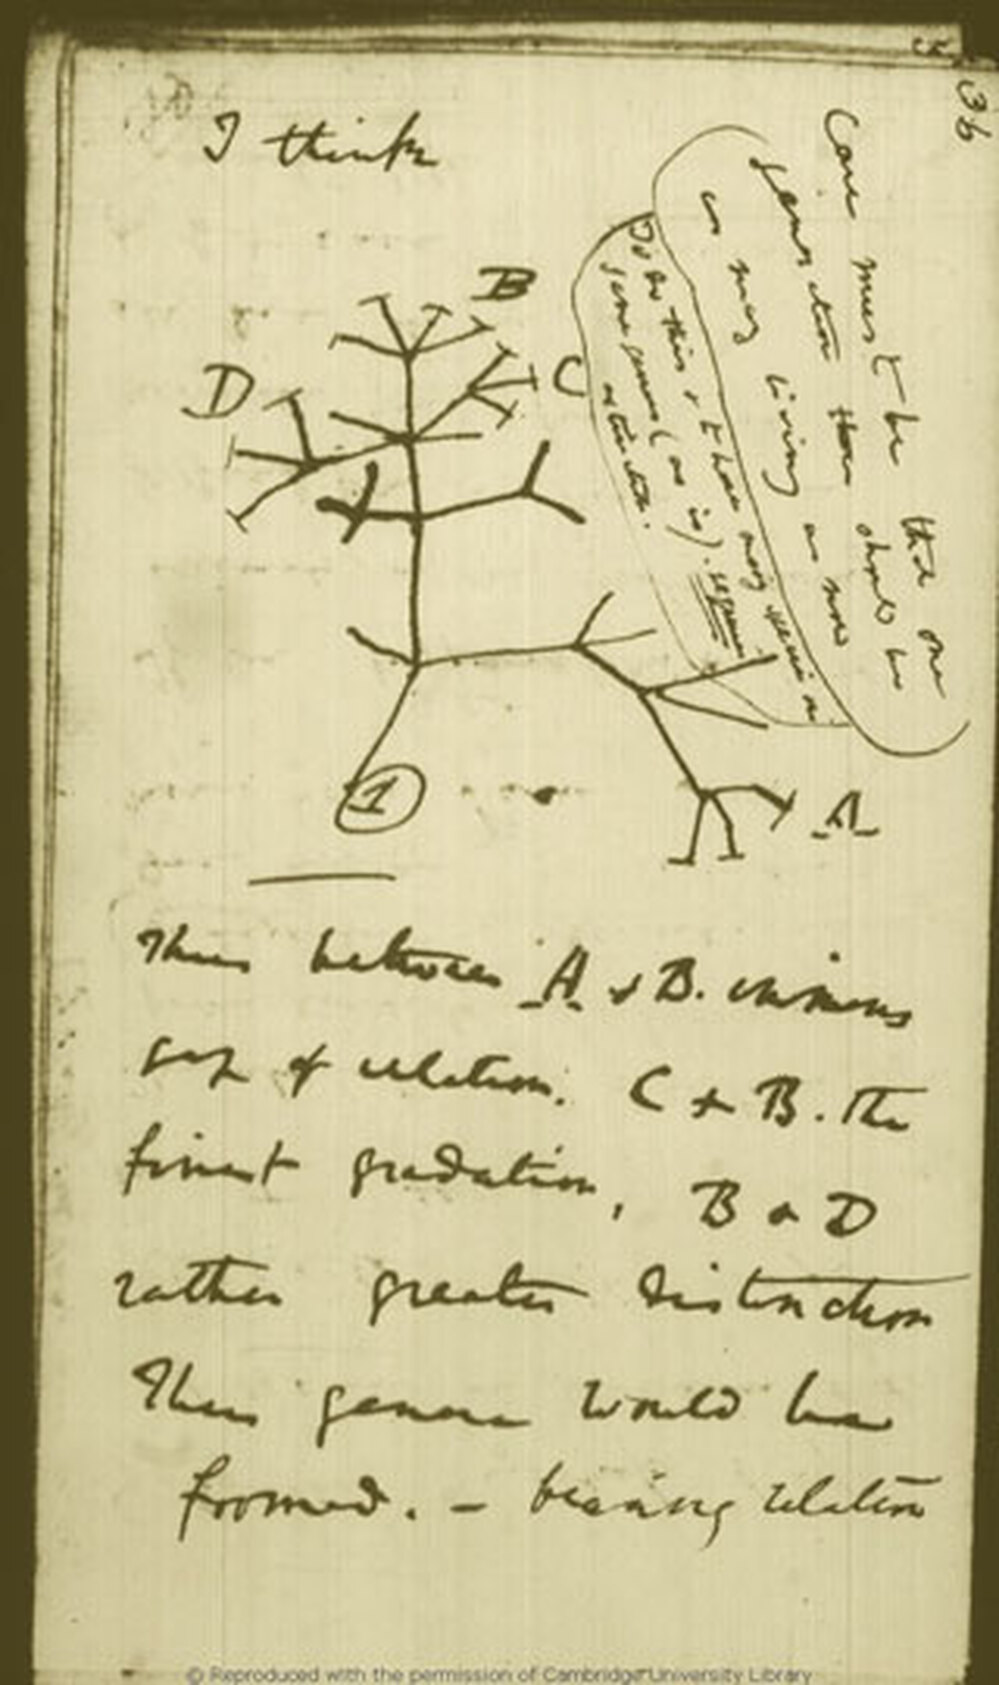 36
I think
Case must be that one
generation then should be
as many living as now
To do this & to have many species in
same genus (as is). requires
extinction.
B
D
C
1
A
Thus between A & B. immens
gap of relation. C & B. The
finest gradation, B & D
rather greater distinction
Thus genera would be
formed. — bearing relation
© Reproduced with the permission of Cambridge University Library